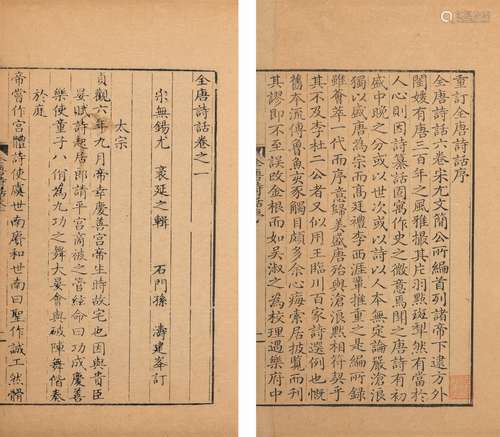 重訂全唐詩話序
全唐詩話六卷宋尤文簡公所編首列諸帝下逮方外
閨媛有唐三百年之風雅撮其片羽點斑犂然有當於
人心則因詩纂話固寓作史之微意焉聞之唐詩有初
盛中晚之分或以世次或以詩以人本無定論嚴滄浪
獨以盛唐為宗而高廷禮李西涯輩推重之是編所錄
雖薈萃一代而序意歸美盛唐殆與滄浪默相符契乎
其不及李杜二公者又似用王臨川百家詩選例也
舊本流傳魯魚亥豕觸目頗多余心痗索居披覽而刊
其謬即不至誤改金根而如吳淑之為校理遇樂府中
全唐詩話卷之一
宋無錫尤 袤延之輯 石門孫 濤建峯訂
太宗
貞觀六年九月帝幸慶善宮帝生時故宅也因與貴臣
宴賦詩起居郎請平宮商被之管絃命曰功成慶善
樂使童子八佾為九功之舞大宴會與破陣舞偕奏
於庭
帝嘗作宮體詩使虞世南賡和世南曰聖作誠工然體